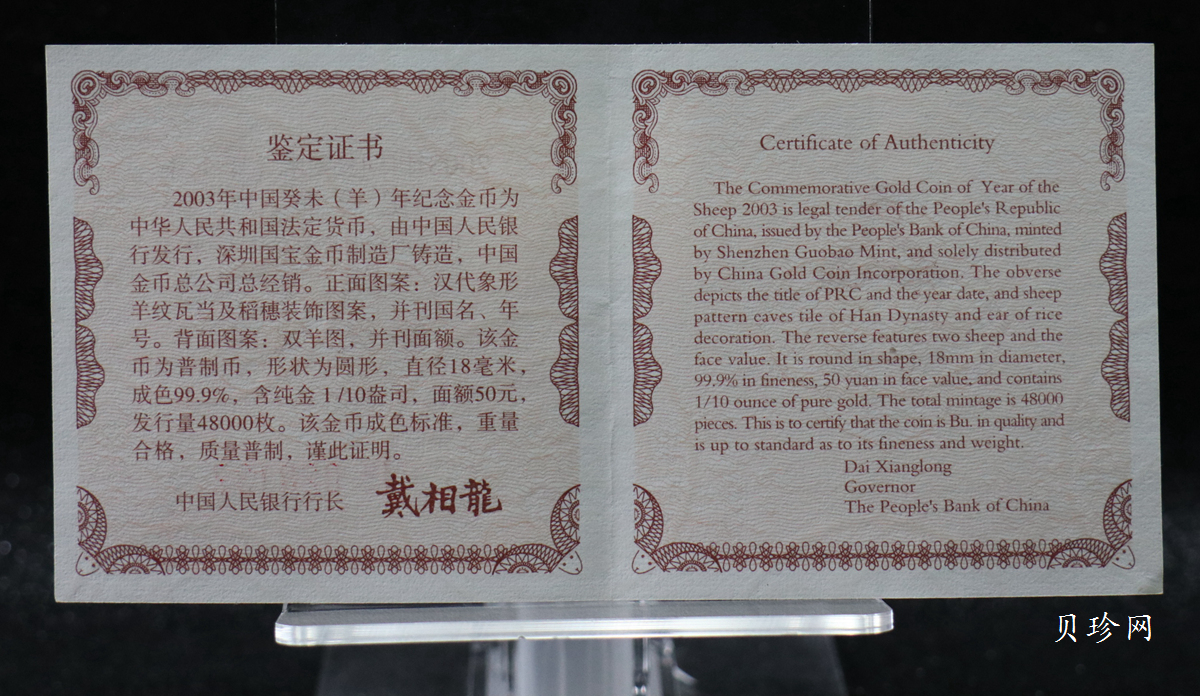 鉴定证书
2003年中国癸未（羊）年纪念金币为
中华人民共和国法定货币，由中国人民银
行发行，深圳国宝金币制造厂铸造，中国
金币总公司总经销。正面图案：汉代象形
羊纹瓦当及稻穗装饰图案，并刊国名、年
号。背面图案：双羊图，并刊面额。该金
币为普制币，形状为圆形，直径18毫米，
成色99.9%，含纯金1/10盎司，面额50元，
发行量48000枚。该金币成色标准，重量
合格，质量普制，谨此证明。
中国人民银行行长 戴相龍
Certificate of Authenticity
The Commemorative Gold Coin of Year of the
Sheep 2003 is legal tender of the People's Republic
of China, issued by the People's Bank of China, minted
by Shenzhen Guobao Mint, and solely distributed
by China Gold Coin Incorporation. The obverse
depicts the title of PRC and the year date, and sheep
pattern eaves tile of Han Dynasty and ear of rice
decoration. The reverse features two sheep and the
face value. It is round in shape, 18mm in diameter,
99.9% in fineness, 50 yuan in face value, and contains
1/10 ounce of pure gold. The total mintage is 48000
pieces. This is to certify that the coin is Bu. in quality and
is up to standard as to its fineness and weight.
Dai Xianglong
Governor
The People's Bank of China
贝珍网